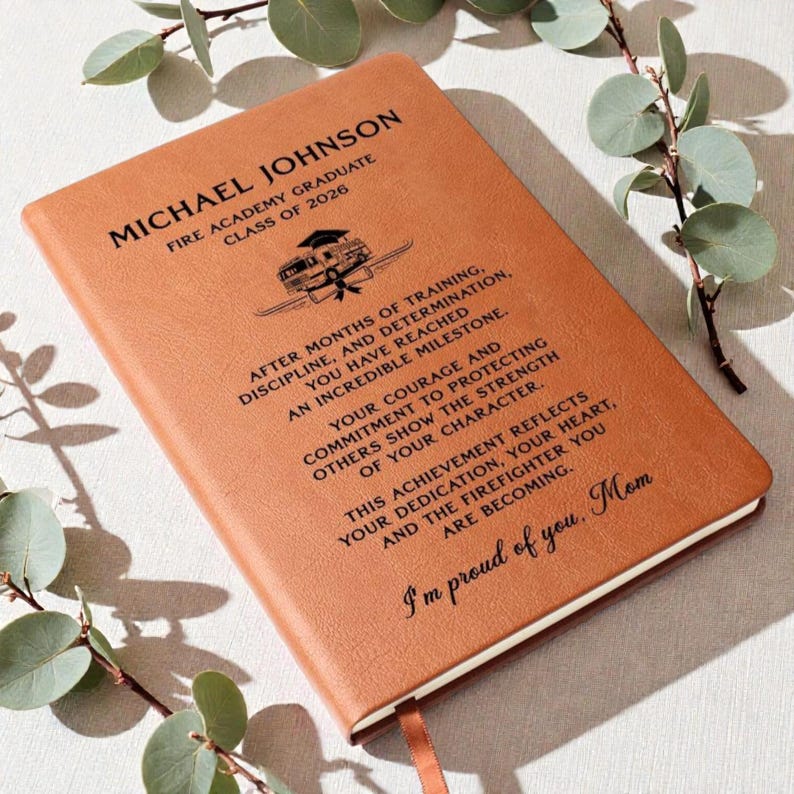 MICHAEL JOHNSON
FIRE ACADEMY GRADUATE
CLASS OF 2026
AFTER MONTHS OF TRAINING,
DISCIPLINE, AND DETERMINATION,
YOU HAVE REACHED
AN INCREDIBLE MILESTONE.
YOUR COURAGE AND
COMMITMENT TO PROTECTING
OTHERS SHOW THE STRENGTH
OF YOUR CHARACTER.
THIS ACHIEVEMENT REFLECTS
YOUR DEDICATION, YOUR HEART,
AND THE FIREFIGHTER YOU
ARE BECOMING.
I'm proud of you, Mom